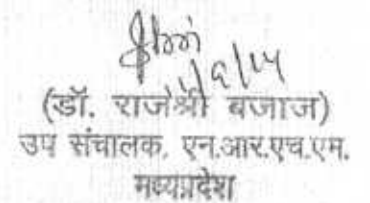 (डॉ. राजेश्री बजाज)
उप संचालक, एन.आर.एच.एम.
मध्यप्रदेश